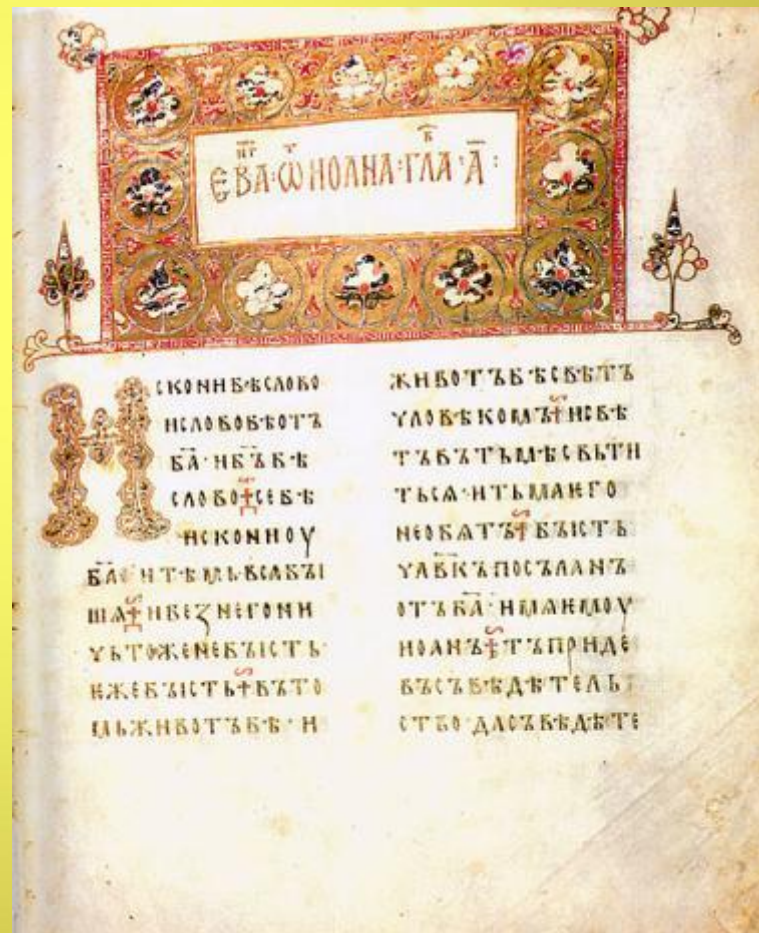 ЕВАⷩ҇ⷢ҇ · Ѡⷮ ИОАНА · ГЛАⷡ҇ · А҃ :
ИСКОНИБѢСЛОВО
ИСЛОВОБѢОТЪ
Б҃А·ИБ҃ЪБѢ
СЛОВО☩СЕБѢ
ИСКОНИОУ
Б҃А·ИТѢМЬВСѦБЪІ
ШѦ☩ИБЕЗНЕГОНИ
ЧЬТОЖЕНЕБЪІСТЬ·
ѤЖЕБЪІСТЬ☩ВЪТО
МЬЖИВОТЪБѢ·И
ЖИВОТЪБѢСВѢТЪ
ЧЛОВѢКОМЪ☩ИСВѢ
ТЪВЪТЬМѢСВЬТИ
ТЬСѦ·ИТЬМАѤГО
НЕОБѦТЪ☩БЪІСТЬ
ЧЛ҃ВКЪПОСЪЛАНЪ
ОТЪБ҃А·ИМѦѤМОУ
ИОАНЪ☩ТЪПРИДЕ
ВЪСЪВѢДѢТЕЛЬ
СТВО·ДАСЪВѢДѢТЕ